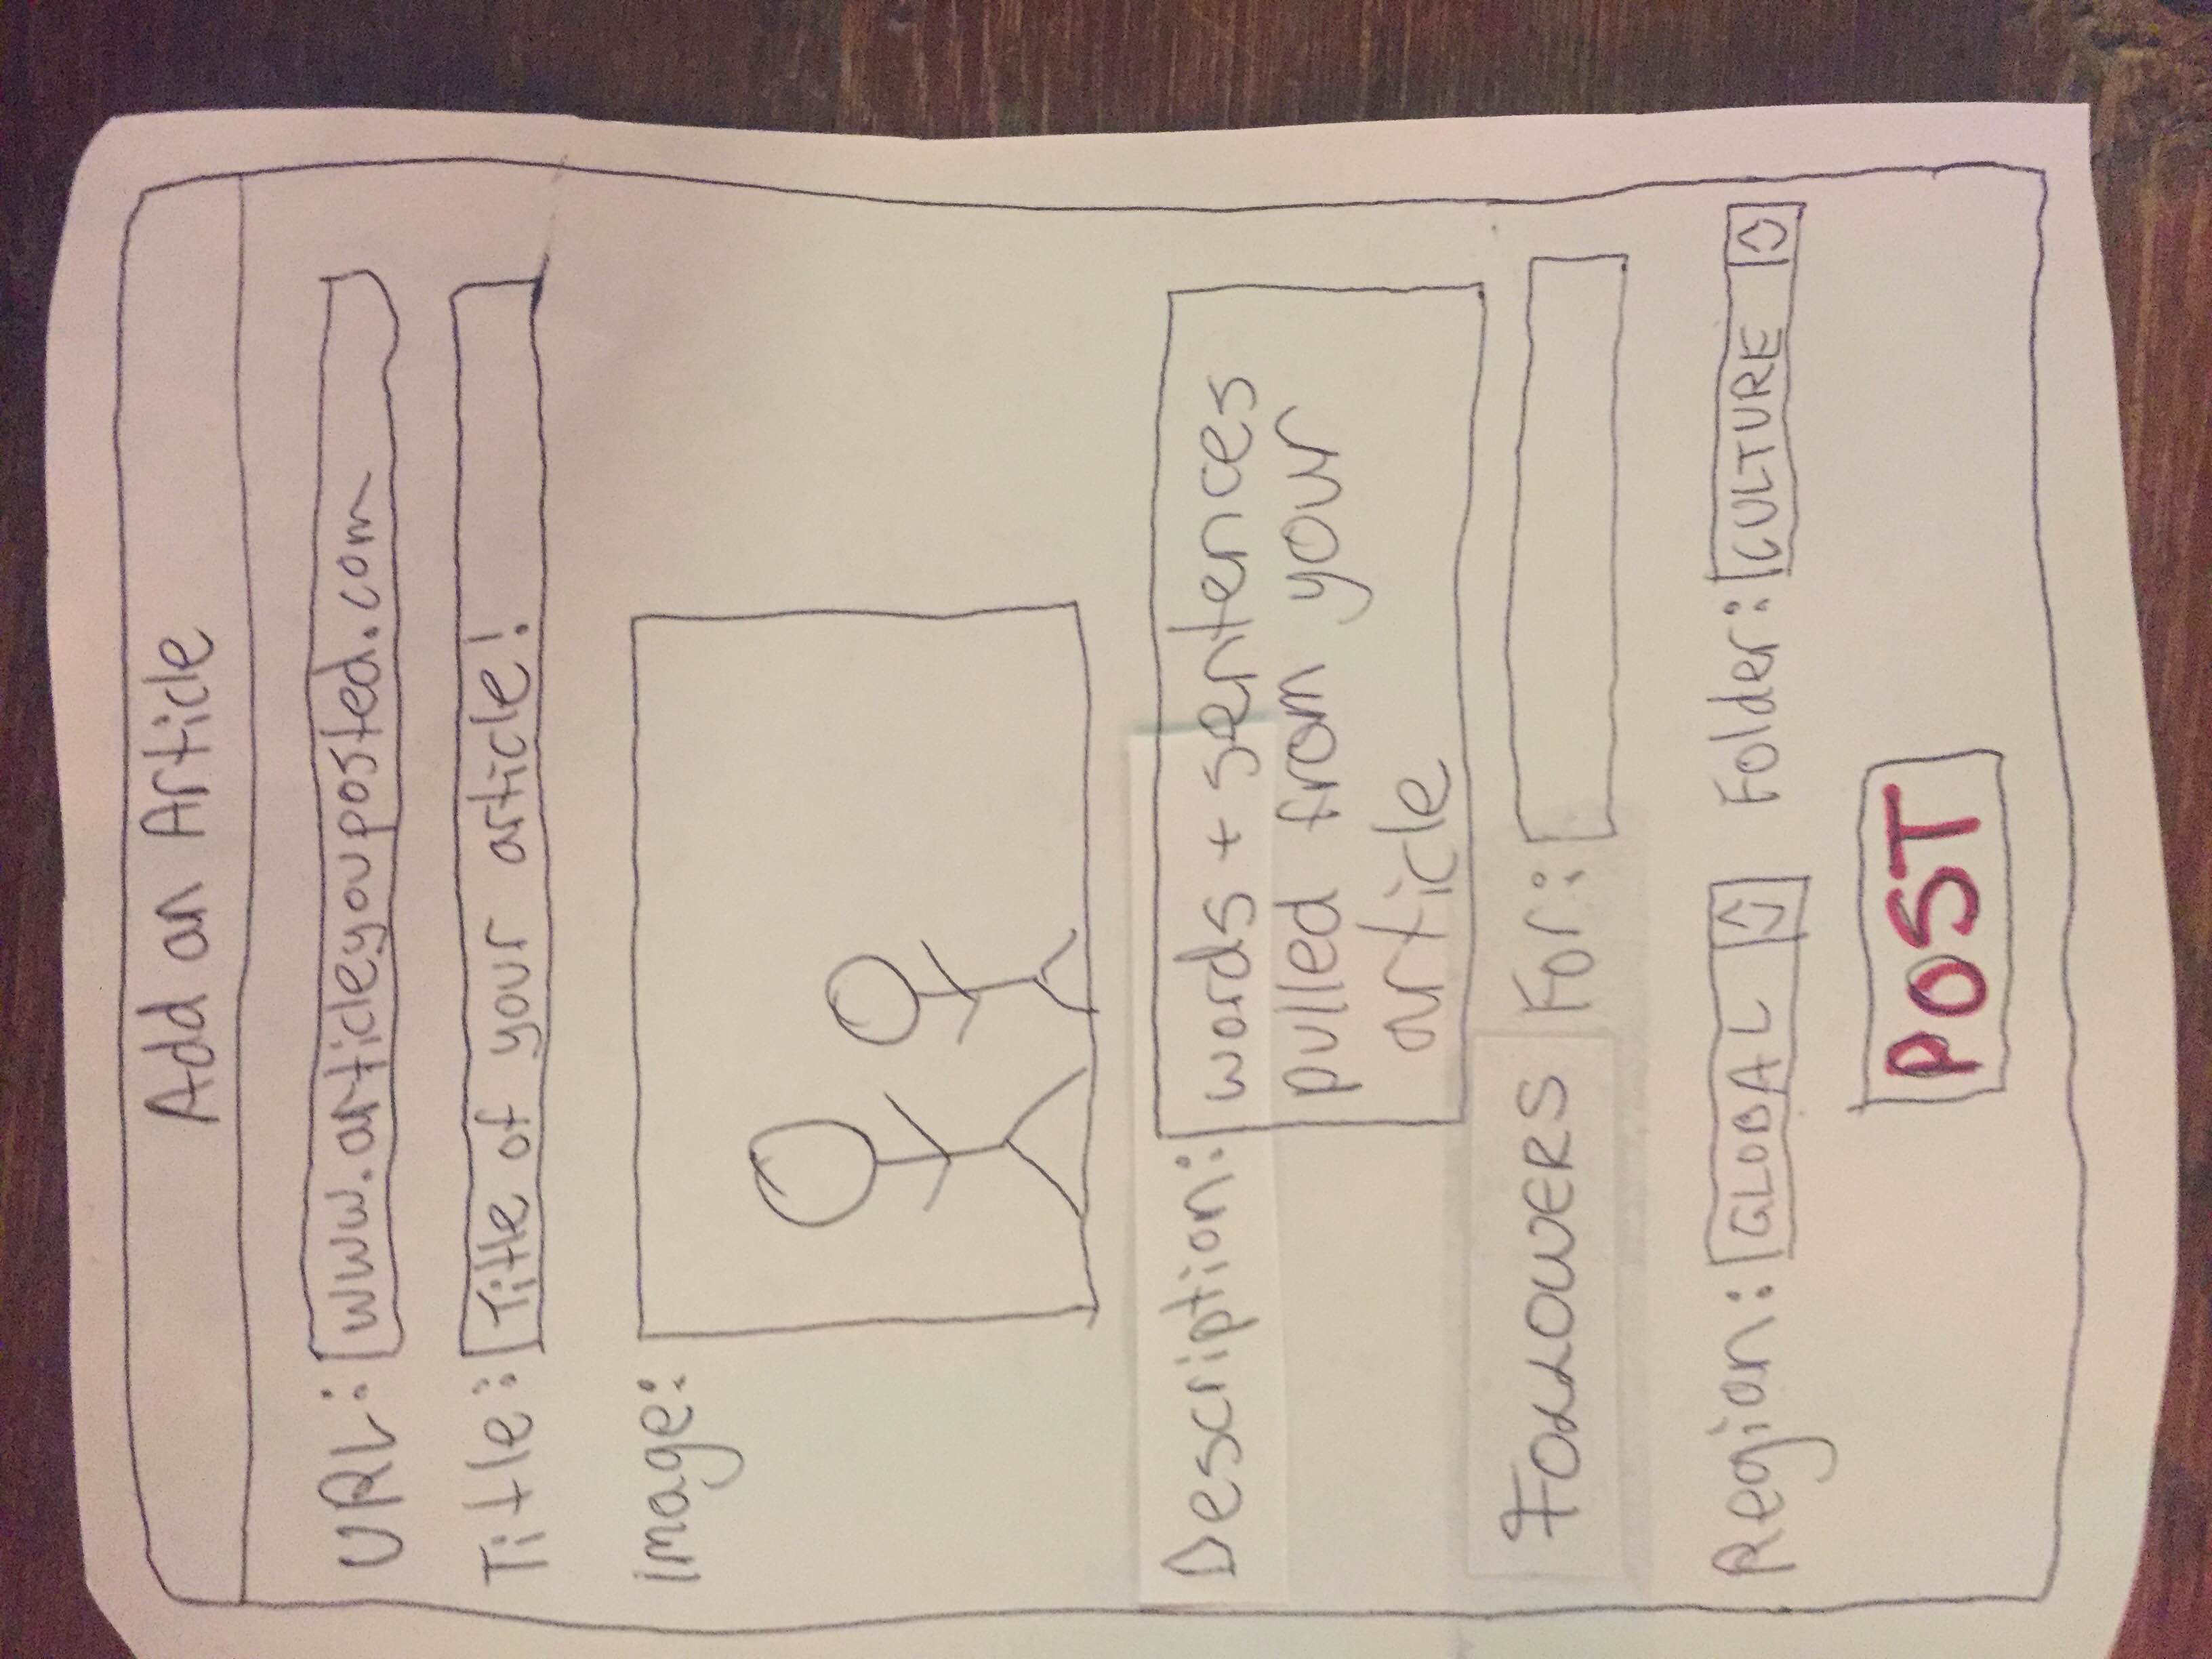 Add an Article
URL: www.articleyouposted.com
Title: Title of your article!
Image:
Description: words + sentences
pulled from your
article
FOLLOWERS For:
Region: GLOBAL Folder: CULTURE
POST